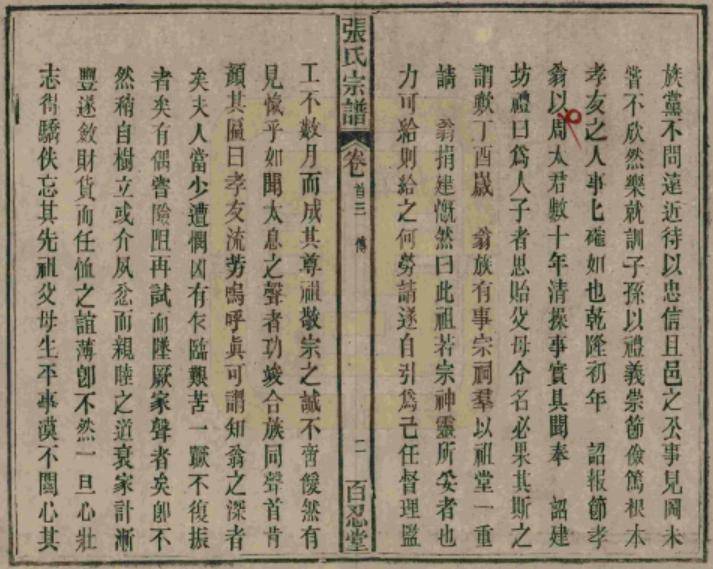 族黨不問遠近待以忠信且邑之公事見聞未
嘗不欣然樂就訓子孫以禮義崇節儉篤根本
孝友之人事匕確如也乾隆初年　詔報節孝
翁以周太君數十年清操事實具聞奉　詔建
坊禮曰爲人子者思貽父母令名必果其斯之
謂歟丁酉歲　翁族有事宗祠羣以祖堂一重
請　翁捐建慨然曰此祖若宗神靈所妥者也
力可給則給之何勞請遂自引爲己任督理監
張氏宗譜　卷首三　傳　二　百忍堂
工不數月而成其尊祖敬宗之誠不啻僾然有
見愾乎如聞太息之聲者功竣合族同聲首肯
顏其匾曰孝友流芳嗚呼眞可謂知翁之深者
矣夫人當少遭憫凶有乍臨艱苦一蹶不復振
者矣有偶嘗險阻再試而墜厥家聲者矣卽不
然稍自樹立或介夙忿而親睦之道衰家計漸
豐遂斂財貨而任恤之誼薄卽不然一旦心壯
志得驕佚忘其先祖父母生平事漠不關心其